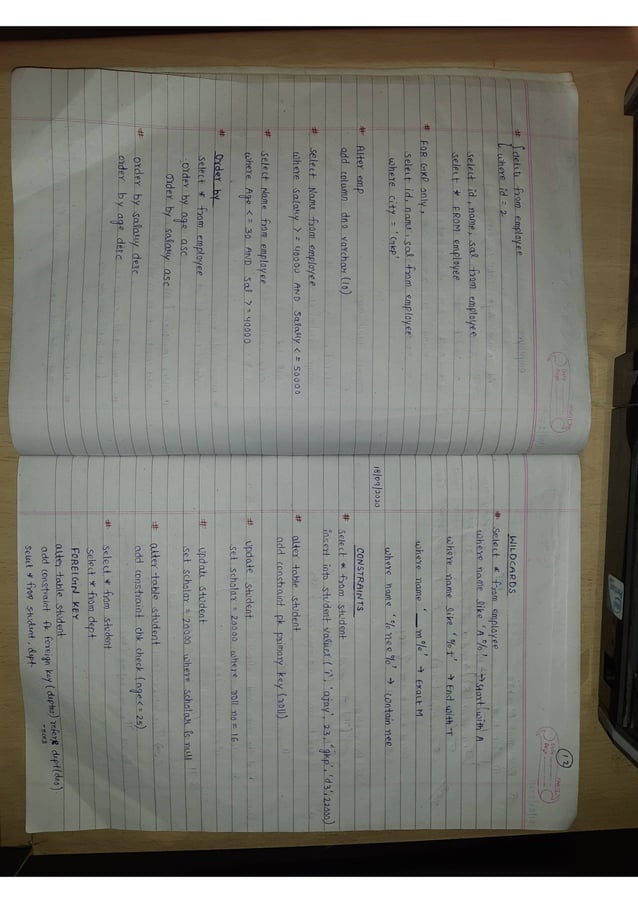 # delta from employee
where id = 2
select id, name, sal from employee
select * FROM employee
# FOR GKP only,
select id, name, sal from employee
where city = 'GKP'
# Alter emp
add column dno varchar (10)
# select Name from employee
where salary > = 40000 AND salary < = 50000
# select Name from employee
where Age < = 30 AND sal > = 40000
# Order by
select * from employee
order by age asc
order by salary asc
# order by salary desc
order by age desc
12
WILDCARDS
* select * from employee
where name like 'A%' → start with A
where name like '%t' → End with T
where name '__m%' → Exalt M
where name '%nee%' → contain nee
18/09/2020
CONSTRAINTS
# select * from student
insert into student values ('1', 'ajay', 23, 'gkp', 'd3', 22000)
# alter table student
add constraint pk primary key (roll)
# update student
set scholar = 20000 where roll no = 16
# update student
set scholar = 20000 where scholar is null
# alter table student
add constraint chk check (age < = 25)
# select * from student
select * from dept
FOREIGN KEY
alter table student
add constraint fk foreign key (deptno) dept (dno)
select * from student, dept